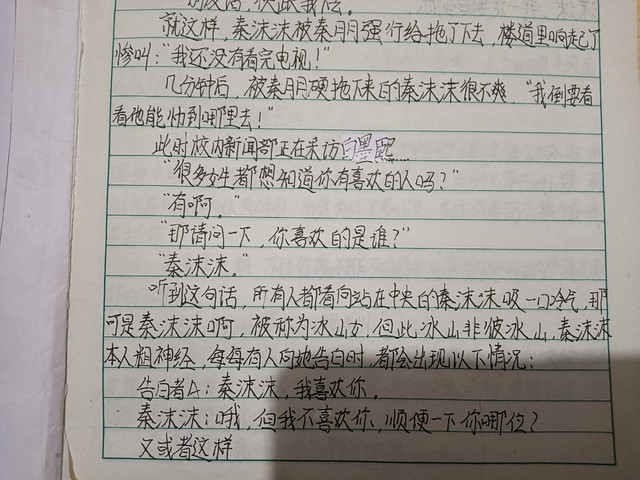 就这样，秦沫沫被秦月月强行给拖了下去，楼道里响起了
惨叫："我还没有看完电视！"
几分钟后，被秦月月硬拖下来的秦沫沫很不爽，"我倒要看
看他能帅到哪里去！"
此时校内新闻部正在采访白墨熙……
"很多女生都想知道你有喜欢的人吗？"
"有啊。"
"那请问一下，你喜欢的是谁？"
"秦沫沫。"
听到这句话，所有人都看向站在中央的秦沫沫吸一口冷气，那
可是秦沫沫啊，被称为冰山女，但此冰山非彼冰山，秦沫沫
本人粗神经，每每有人向她告白时，都会出现以下情况：
告白者A：秦沫沫，我喜欢你。
秦沫沫：哦，但我不喜欢你，顺便一下你哪位？
又或者这样